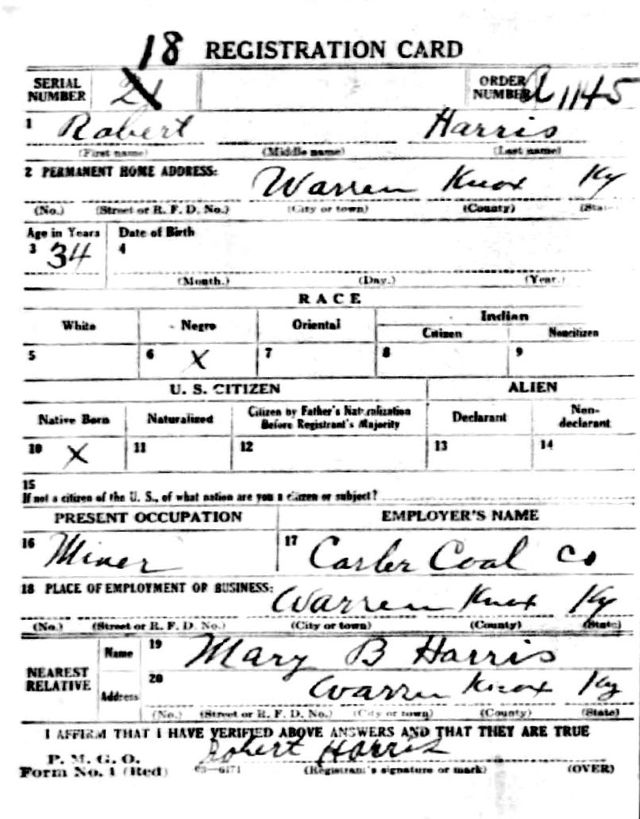 18 REGISTRATION CARD
SERIAL NUMBER 21 ORDER NUMBER A 1145
1 Robert Harris
(First name) (Middle name) (Last name)
2 PERMANENT HOME ADDRESS: Warren Knox Ky
(No.) (Street or R. F. D. No.) (City or town) (County) (State)
Age in Years Date of Birth
3 34 4
(Month.) (Day.) (Year.)
RACE
White Negro Oriental Indian
Citizen Noncitizen
5 6 X 7 8 9
U. S. CITIZEN ALIEN
Native Born Naturalized Citizen by Father's Naturalization Before Registrant's Majority Declarant Non-declarant
10 X 11 12 13 14
15
If not a citizen of the U. S., of what nation are you a citizen or subject?
PRESENT OCCUPATION EMPLOYER'S NAME
16 Miner 17 Coal Co
18 PLACE OF EMPLOYMENT OR BUSINESS:
Warren Knox Ky
(No.) (Street or R. F. D. No.) (City or town) (County) (State)
NEAREST RELATIVE Name 19 Mary B Harris
Address 20 Warren Knox Ky
(No.) (Street or R. F. D. No.) (City or town) (County) (State)
I AFFIRM THAT I HAVE VERIFIED ABOVE ANSWERS AND THAT THEY ARE TRUE
P. M. G. O. Robert Harris
Form No. 1 (Red) 03—6171 (Registrant's signature or mark) (OVER)